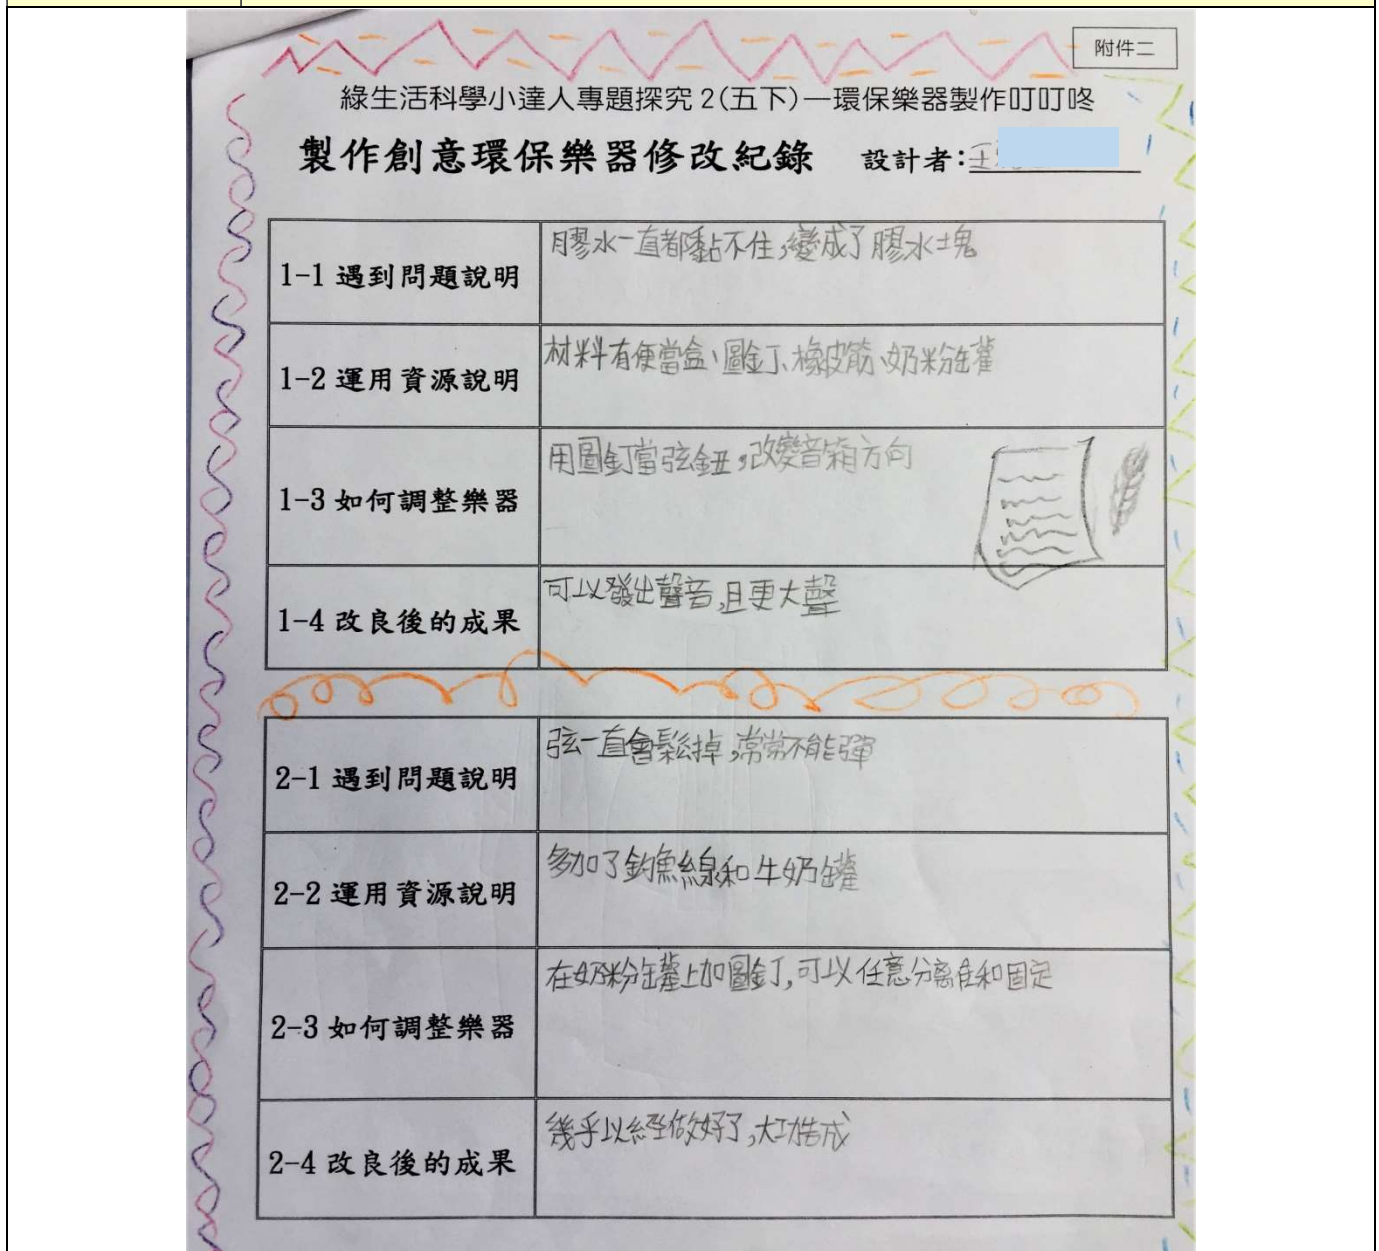 附件二
綠生活科學小達人專題探究2(五下)—環保樂器製作叮叮咚
製作創意環保樂器修改紀錄 設計者:王
1-1 遇到問題說明 膠水一直都黏不住,變成了膠水塊
1-2 運用資源說明 材料有便當盒、圖釘、橡皮筋、奶粉罐
1-3 如何調整樂器 用圖釘當弦鈕,改變音箱方向
1-4 改良後的成果 可以發出聲音,且更大聲
2-1 遇到問題說明 弦一直會鬆掉,常常不能彈
2-2 運用資源說明 多加了釣魚線和牛奶罐
2-3 如何調整樂器 在奶粉罐上加圖釘,可以任意分離和固定
2-4 改良後的成果 幾乎以經做好了,大功告成